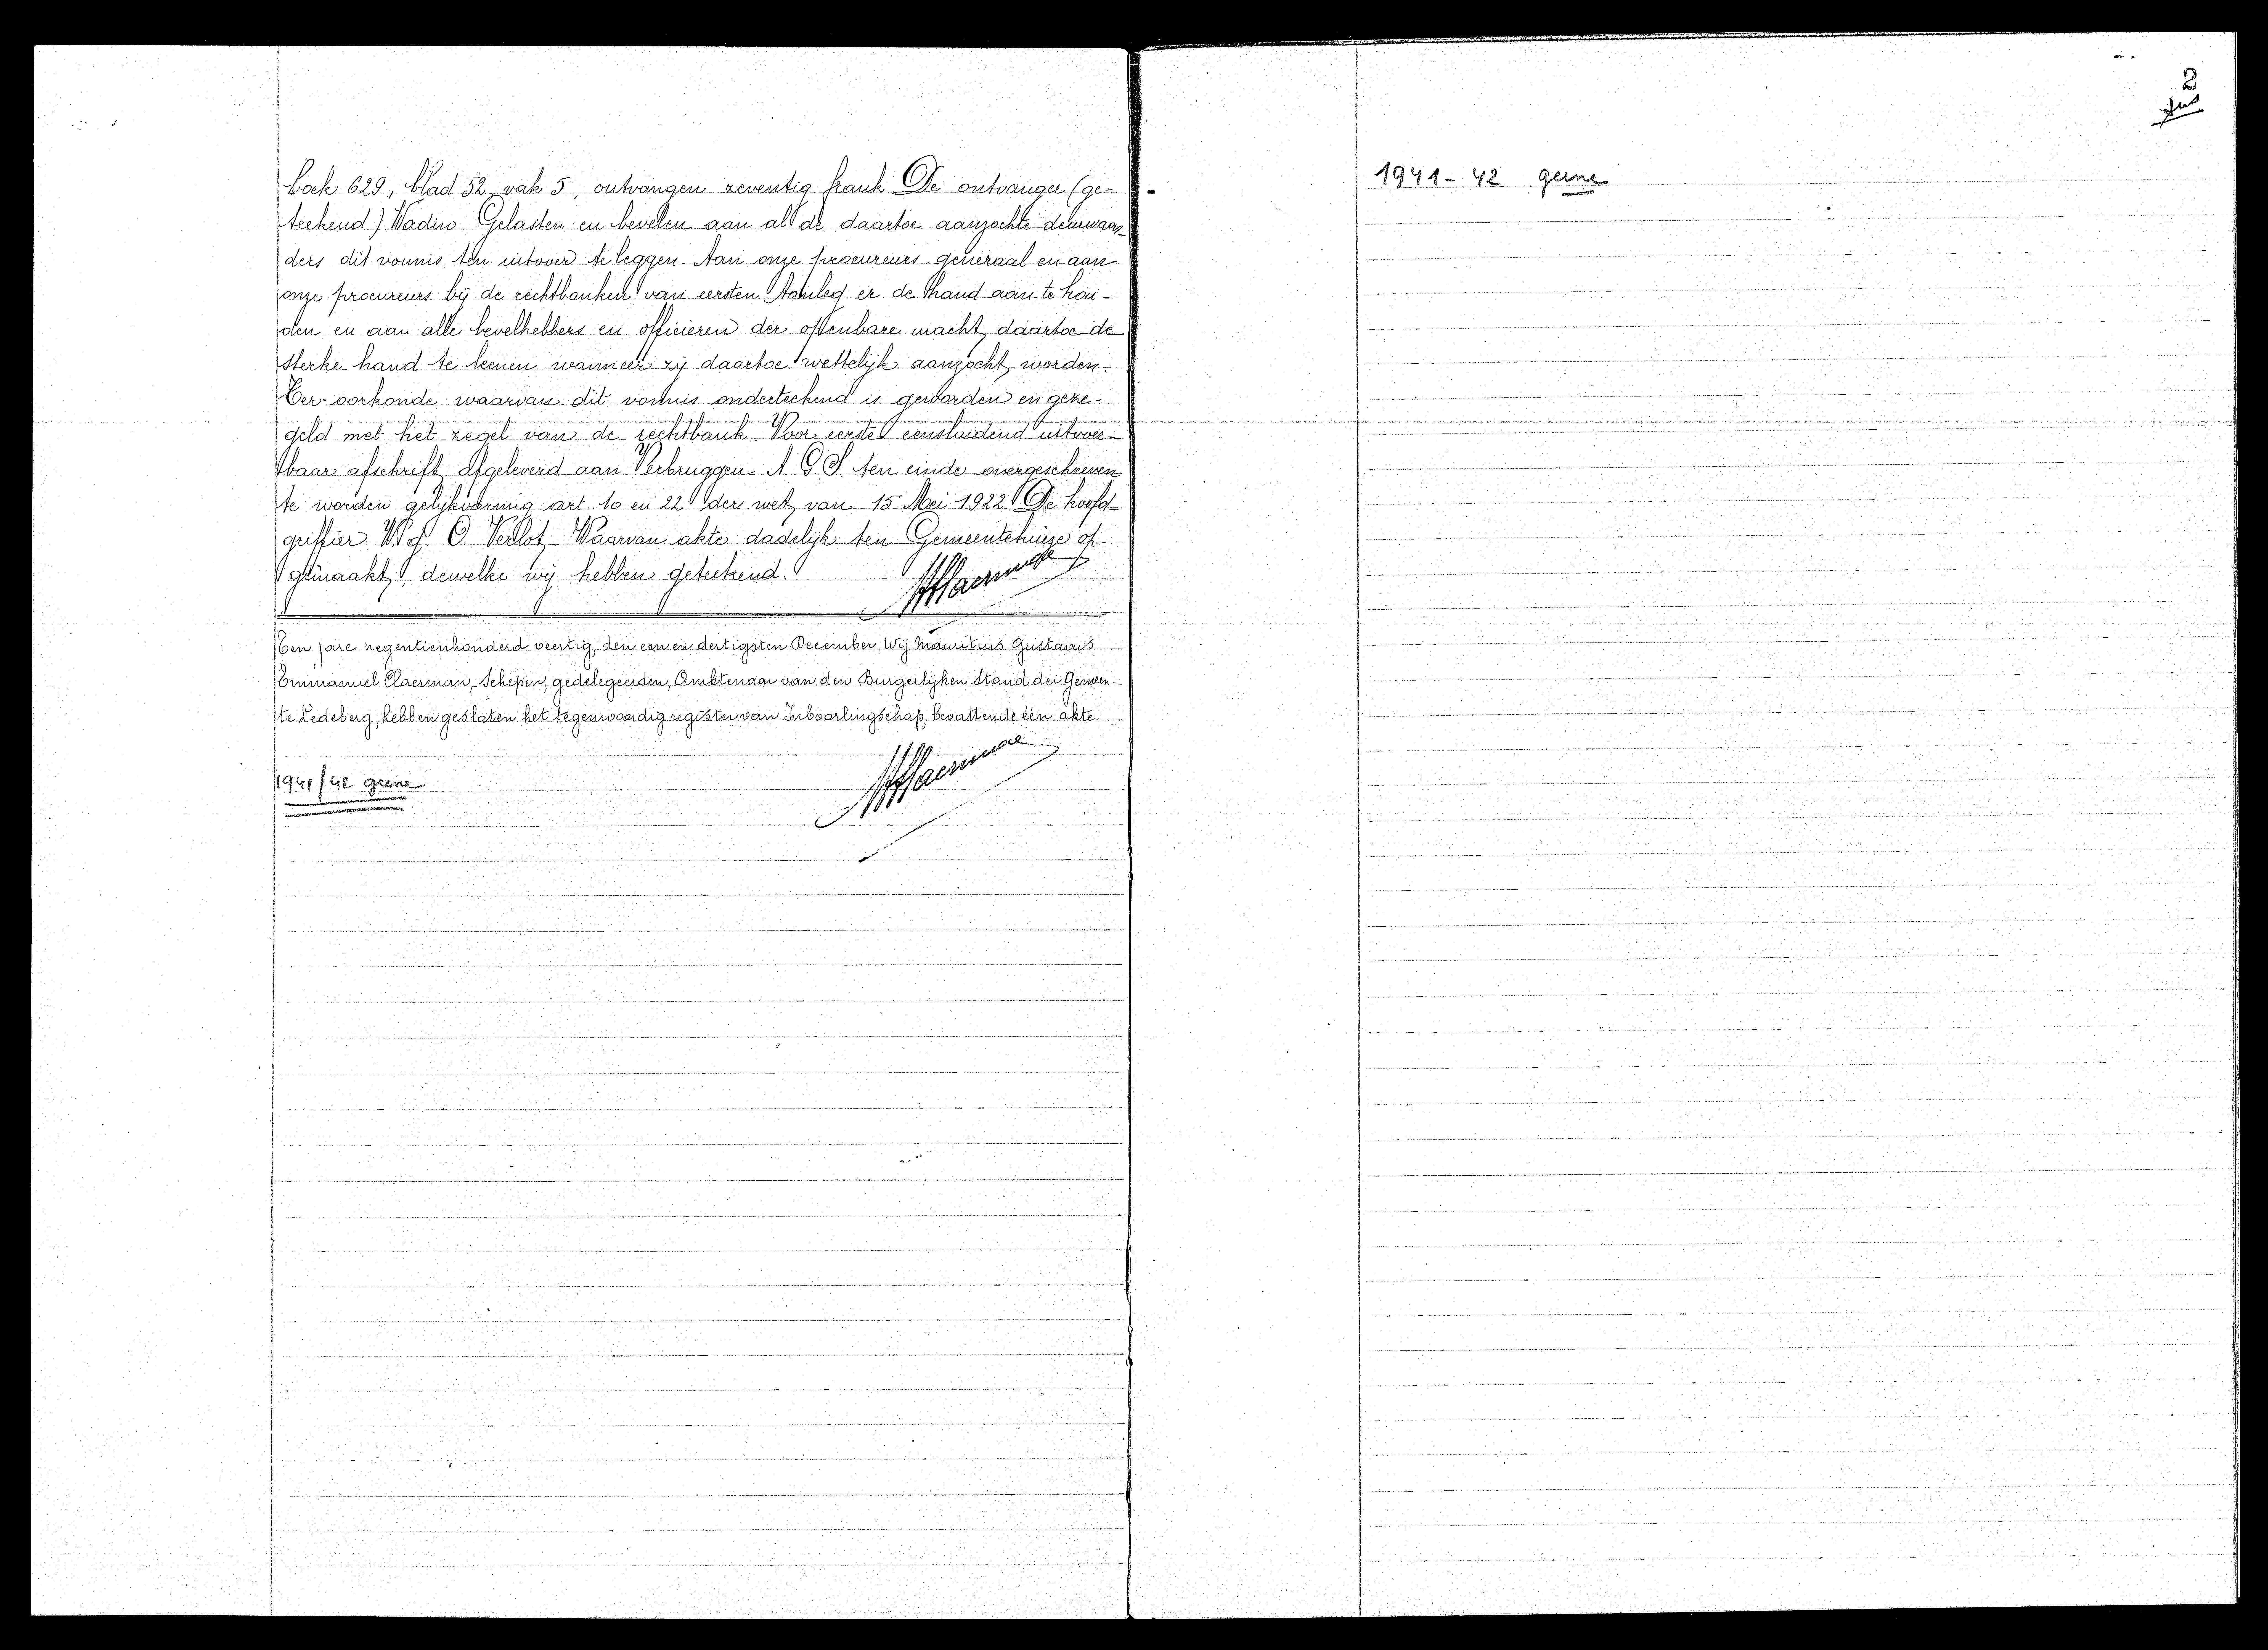 boek 629, blad 52, vak 5, ontvangen zeventig frank De ontvanger (ge-
teekend) Wadin. Gelasten en bevelen aan al de daartoe aanzochte deurwaar-
ders dit vonnis ten uitvoer te leggen. Aan onze procureurs-generaal en aan
onze procureurs bij de rechtbanken van eersten Aanleg er de hand aan te hou-
den en aan alle bevelhebbers en officieren der openbare macht, daartoe de
sterke hand te leenen wanneer zij daartoe wettelijk aanzocht worden.-
Ter oorkonde waarvan dit vonnis onderteekend is geworden en geze-
geld met het zegel van de rechtbank. Voor eerste eensluidend uitvoer-
baar afschrift, afgeleverd aan Verbruggen A G S ten einde overgeschreven
te worden gelijkvormig art. 10 en 22 der wet, van 15 Mei 1922. De hoofd-
griffier W.g. O. Verlot, Waarvan akte dadelijk ten Gemeentehuize op-
gemaakt, dewelke wij hebben geteekend.
Ten jare negentienhonderd veertig, den een en dertigsten December, Wij Mauritius Gustavus
Emmanuel Claerman, Schepen, gedelegeerden, Ambtenaar van den Burgerlijken Stand der Gemeen-
te Ledeberg, hebben gesloten het tegenwoordig register van Inboorlingschap, bevattende één akte.
1941/42 geene
2
1941-42 geene